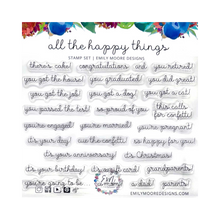 all the happy things
STAMP SET | EMILY MOORE DESIGNS
there's cake! congratulations and you retired!
you got the house! you graduated! you did great!
you got the job! you did it! you got a cat!
you passed the test! so proud of you this calls for confetti!
you're engaged! you're married! you're pregnant!
it's your day! cue the confetti! so happy for you!
it's your anniversary! it's Christmas!
it's your birthday! it's a gift card! grandparents
you're going to be a dad! parents
EMILYMOOREDESIGNS.COM